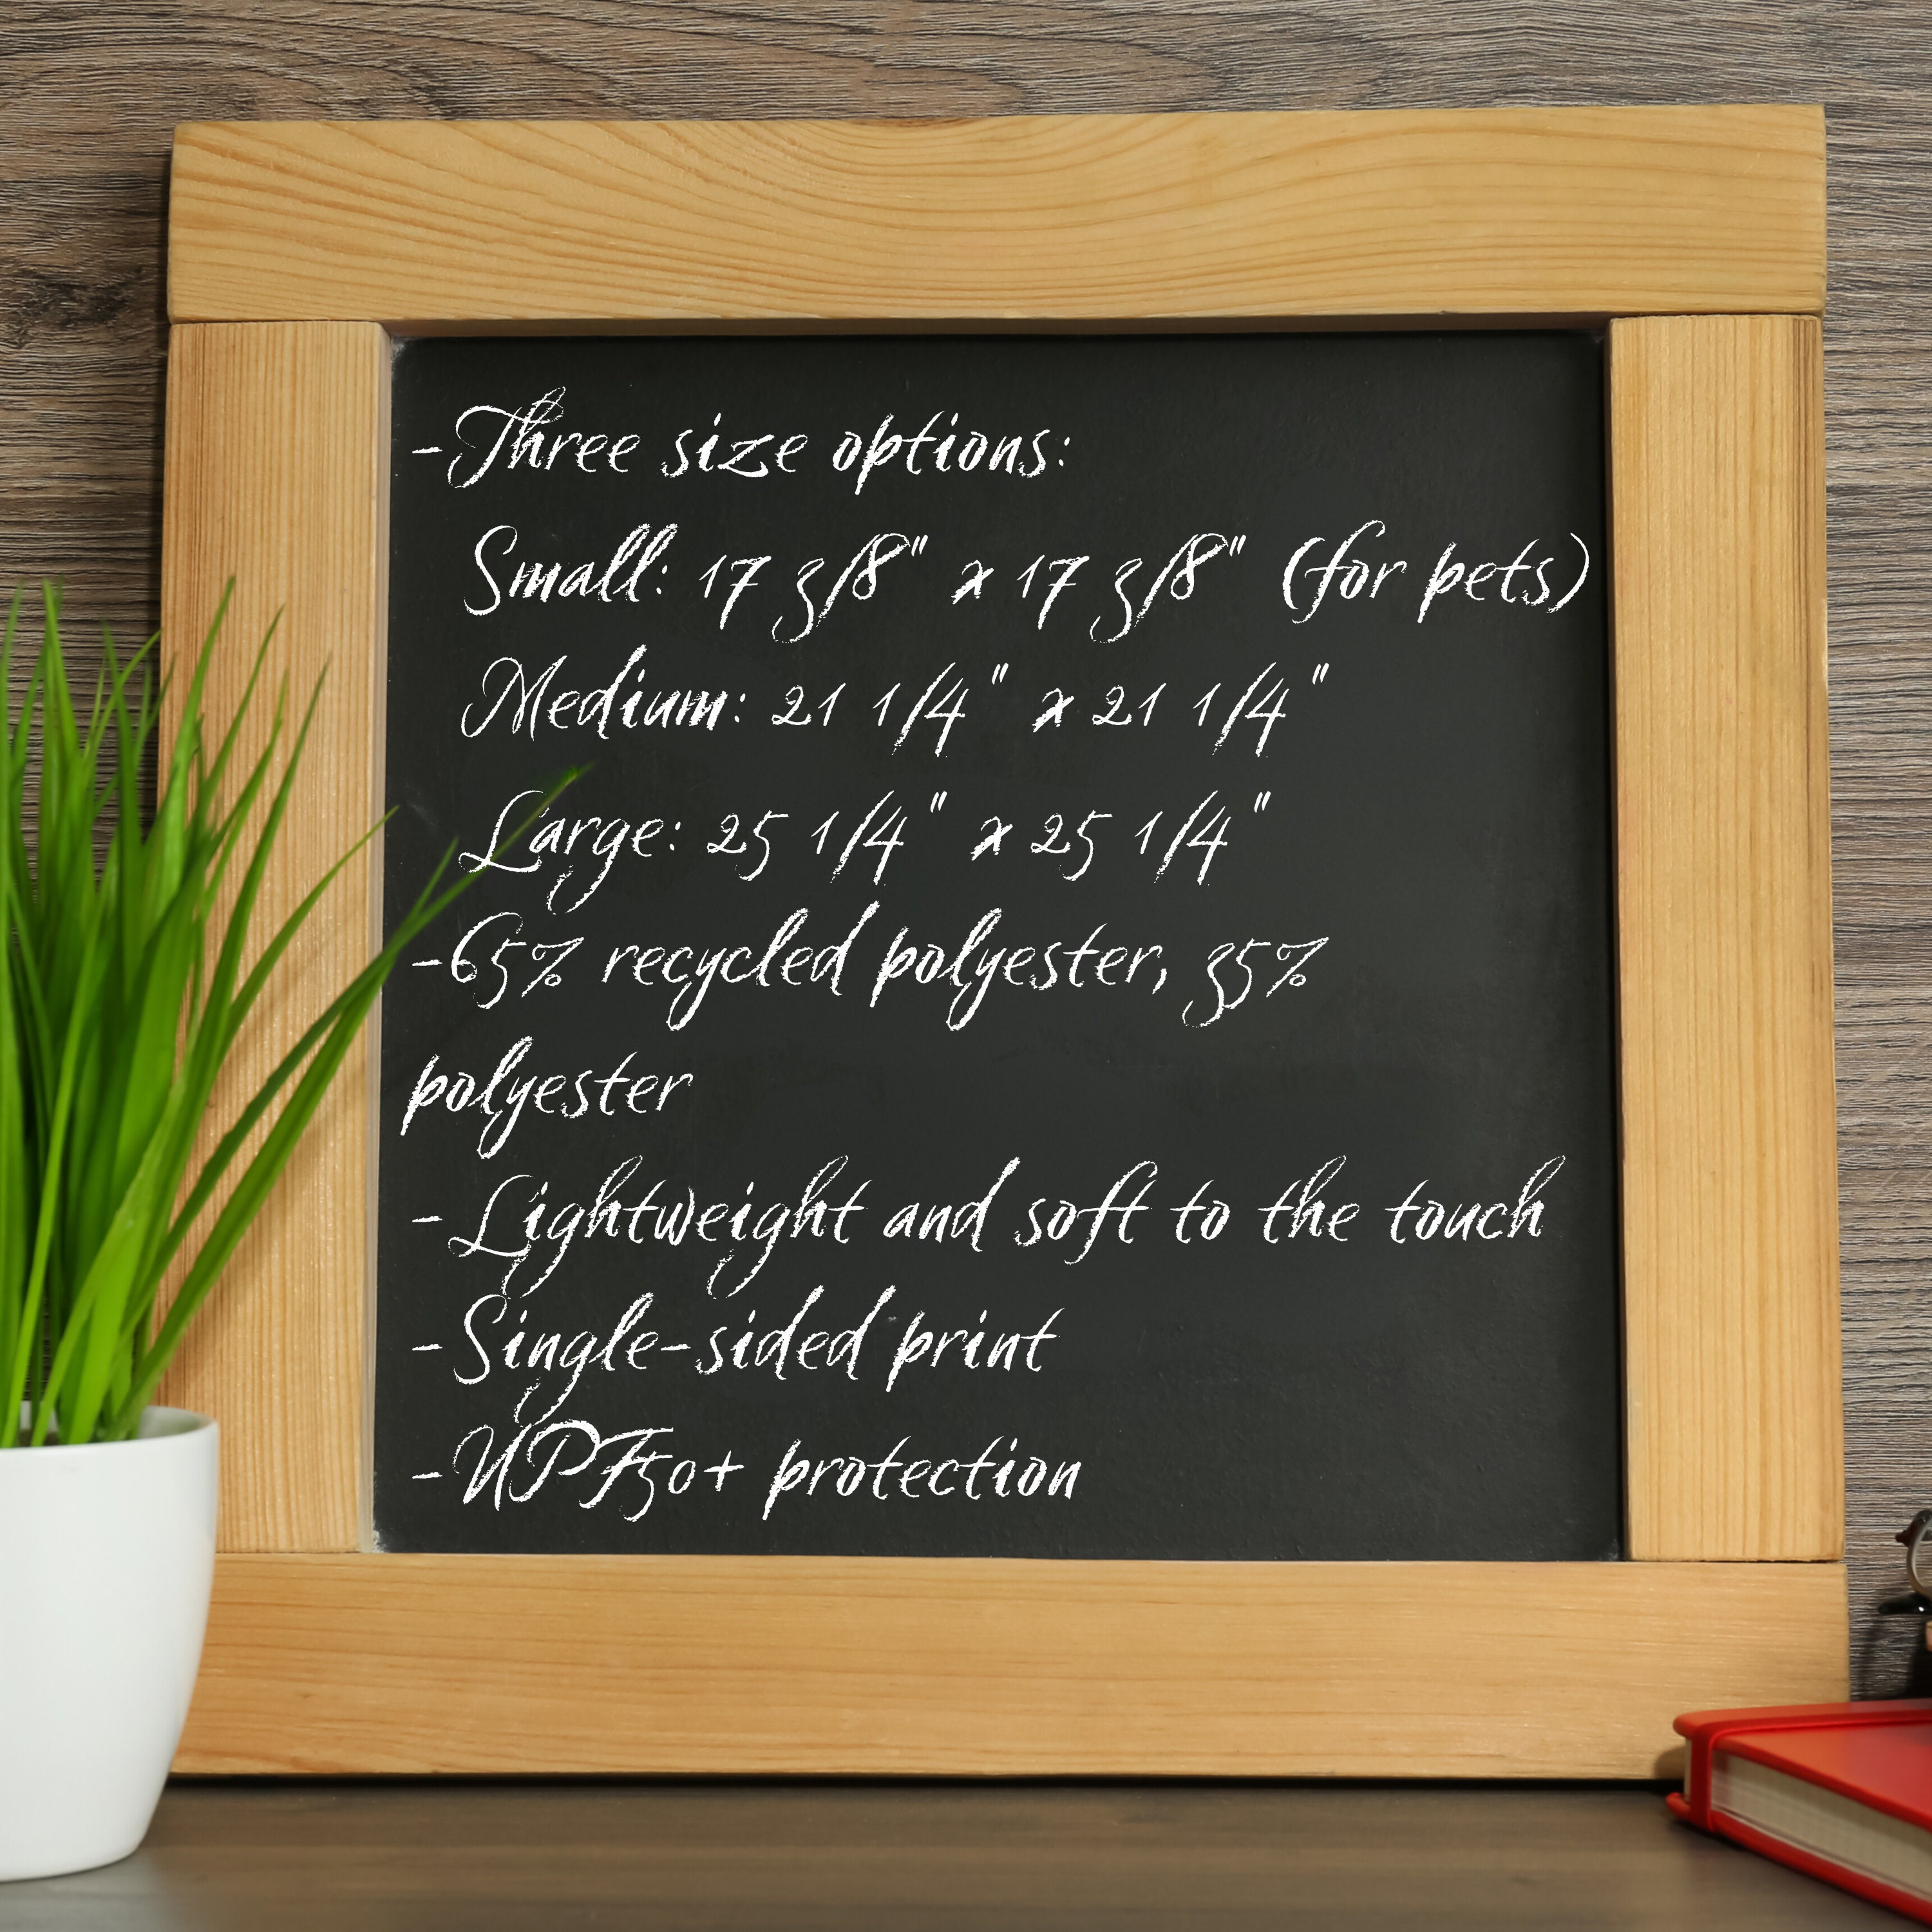 -Three size options:
Small: 17 3/8" x 17 3/8" (for pets)
Medium: 21 1/4" x 21 1/4"
Large: 25 1/4" x 25 1/4"
-65% recycled polyester, 35%
polyester
-Lightweight and soft to the touch
-Single-sided print
-UPF50+ protection